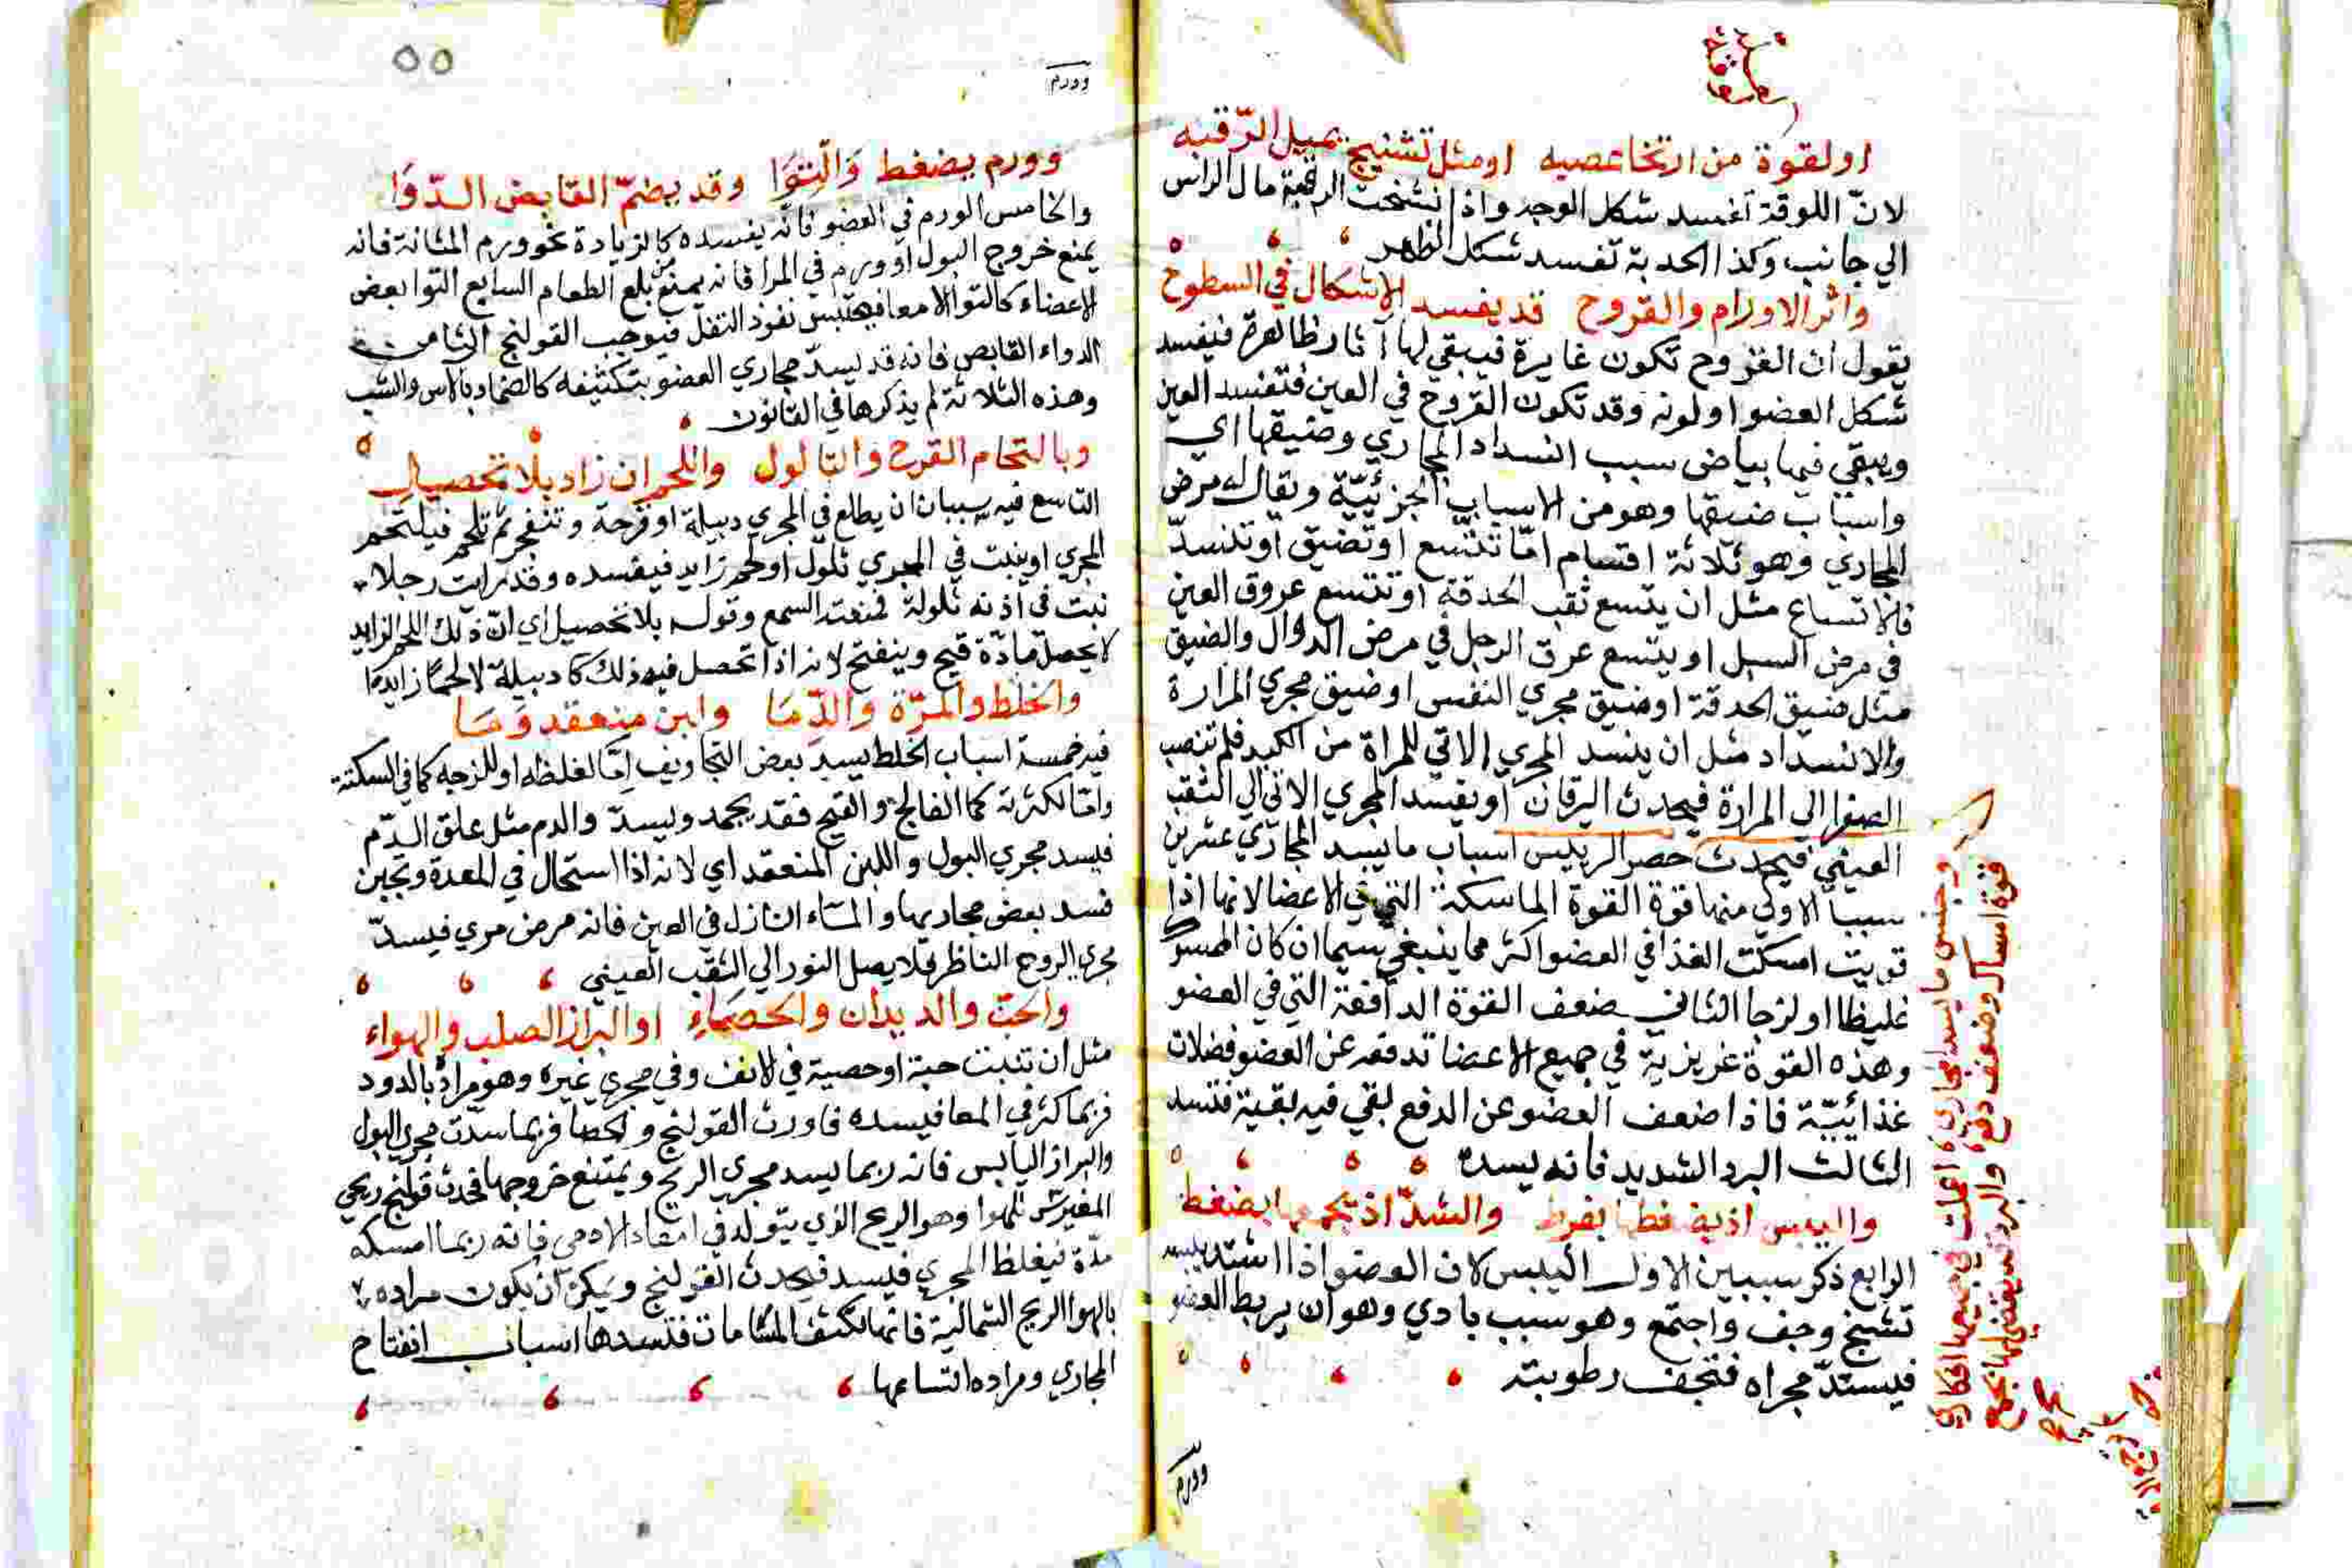 او لقوة من ارتخا عصبه او مثل تشنيج يميل الرّقبه
لانّ اللوقة تفسد شكل الوجه واذا تشنجت الرقبة مال الراس
الي جانب وكذا الحدبة تفسد شكل الظهر
واثر الاورام والقروح قد يفسد الاشكال في السطوح
يقول ان القروح تكون غايرة فيبقي لها آثار ظاهرة فيفسد
شكل العضو او لونه وقد تكون القروح في العين فتفسد العين
ويبقي فيها بياض سبب انسداد المجاري وضيقها اي
واسباب ضيقها وهو من الاسباب الجزئيّة ويقال له مرض
المجاري وهو ثلاثة اقسام امّا تتّسع او تضيق او تنسدّ
فالاتساع مثل ان يتسع ثقب الحدقة او تتسع عروق العين
في مرض السبل او يتسع عرق الرجل في مرض الدوال والضيق
مثل ضيق الحدقة او ضيق مجري النفس او ضيق مجري المرارة
والانسداد مثل ان ينسد المجري الاتي للمراة من الكبد فلم تنصب
الصفرا الي المرارة فيحدث اليرقان او يفسد المجري الاتي الي الثقب
العيني فيحدث حصر الريليس اسباب ما يسد المجاري عشرين
سببا الاولي منها قوة القوة الماسكة التي في الاعضا لانها اذا
قويت امسكت الغذا في العضو اكثر مما ينبغي سيما ان كان الممسوك
غليظا او لزجا الثاني ضعف القوة الدافعة التي في العضو
وهذه القوة غريزية في جميع الاعضا تدفعه عن العضو فضلات
غذائيّة فاذا ضعف العضو عن الدفع بقي فيه بقية فتسد
الثالث البرد الشديد فانه يسده
واليبس اذ يضغطها بفرط والشدّ اذ يجمعها بضغط
الرابع ذكر سببين الاول اليبس لان العضو اذا اشتد يبسه
تشنج وجف واجتمع وهو سبب بادي وهو ان يربط العضو
فيستدّ مجراه فتجف رطوبته
وجنس ما يسد المجاري اعلمت في جميعها افكاري
قوة امساك وضعف دفع والبرد اذ يفضي لها بجمع
وورم
وورم يضغط وَالْتِوَا وقد يضمّ القابض الدّوَا
والخامس الورم في العضو فانه يفسده كالزيادة نحو ورم المثانة فانه
يمنع خروج البول او ورم في المرا فانه يمنع من بلع الطعام السابع التوا بعض
الاعضاء كالتوا الامعا فيحتبس نفوذ الثفل فيوجب القولنج الثامن
الدواء القابض فانه قد يسدّ مجاري العضو بتكثيفه كالضماد بالاس والشب
وهذه الثلاثة لم يذكرها في القانون
وبالتحام القرح والثالول واللحم ان زاد بلا تحصيل
التاسع فيه سببان ان يطلع في المجري دبيلة او قرحة وتنفجر ثم تلحم فيلتحم
المجري او ينبت في المجري ثلول او لحم زايد فيفسده وقد رايت رجلا
نبت في اذنه ثلولة فمنعته السمع وقوله بلا تحصيل اي انّ ذلك اللحم الزايد
لا يحصل مادّة قيح وينفتح لانه اذا تحصل فيه ذلك كا دبيلة لا لحمًا زايدًا
والخلط والمرّة والدِّمَا وابن منعقد وَمَا
فيه خمسة اسباب الخلط يسدّ بعض التجاويف امّا لغلظه او للزجه كما في السكتة
وامّا لكثرته كما الفالج والقيح فقد يجمد ويسدّ والدم مثل علق الدّم
فيسد مجري البول واللبن المنعقد اي لانه اذا استحال في المعدة وتجبن
فسد بعض مجاريها والماء النازل في العين فانه مرض مري فيسدّ
مجري الروح الناظر فلا يصل النور الي الثقب العيني
والحبّ والديدان والحصَاءِ او البراز الصلب والهواء
مثل ان تنبت حبة او حصية في لانف وفي مجري غيره وهو مراده بالدود
فربما كثر في المعا فيسده فاورث القولنج والحصا فربما سدّت مجري البول
والبراز اليابس فانه ربما يسد مجري الريح ويمتنع خروجها فحدث قولنج ريحي
وهو الريح الذي يتولد في امعاء الادمي فانه ربما امسكه
مدّة فيغلظ المجري فيسد فيحدث القولنج ويمكن ان يكون مراده
بالهوا الريح الشمالية فانها تكثف المسامات فتسدها اسباب انفتاح
المجاري ومراده اتساعها